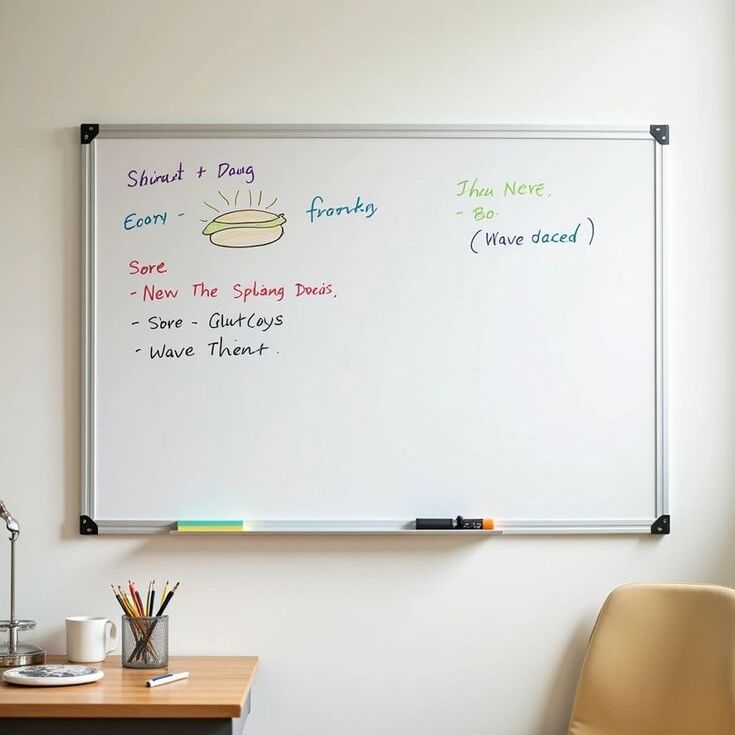 Shiraut + Daug
Eoory - frontry
Sore
- New The Splang Docis,
- Sore - Glut Coys
- Wave Thent.
Nere,
- Bo.
(Wave daced)